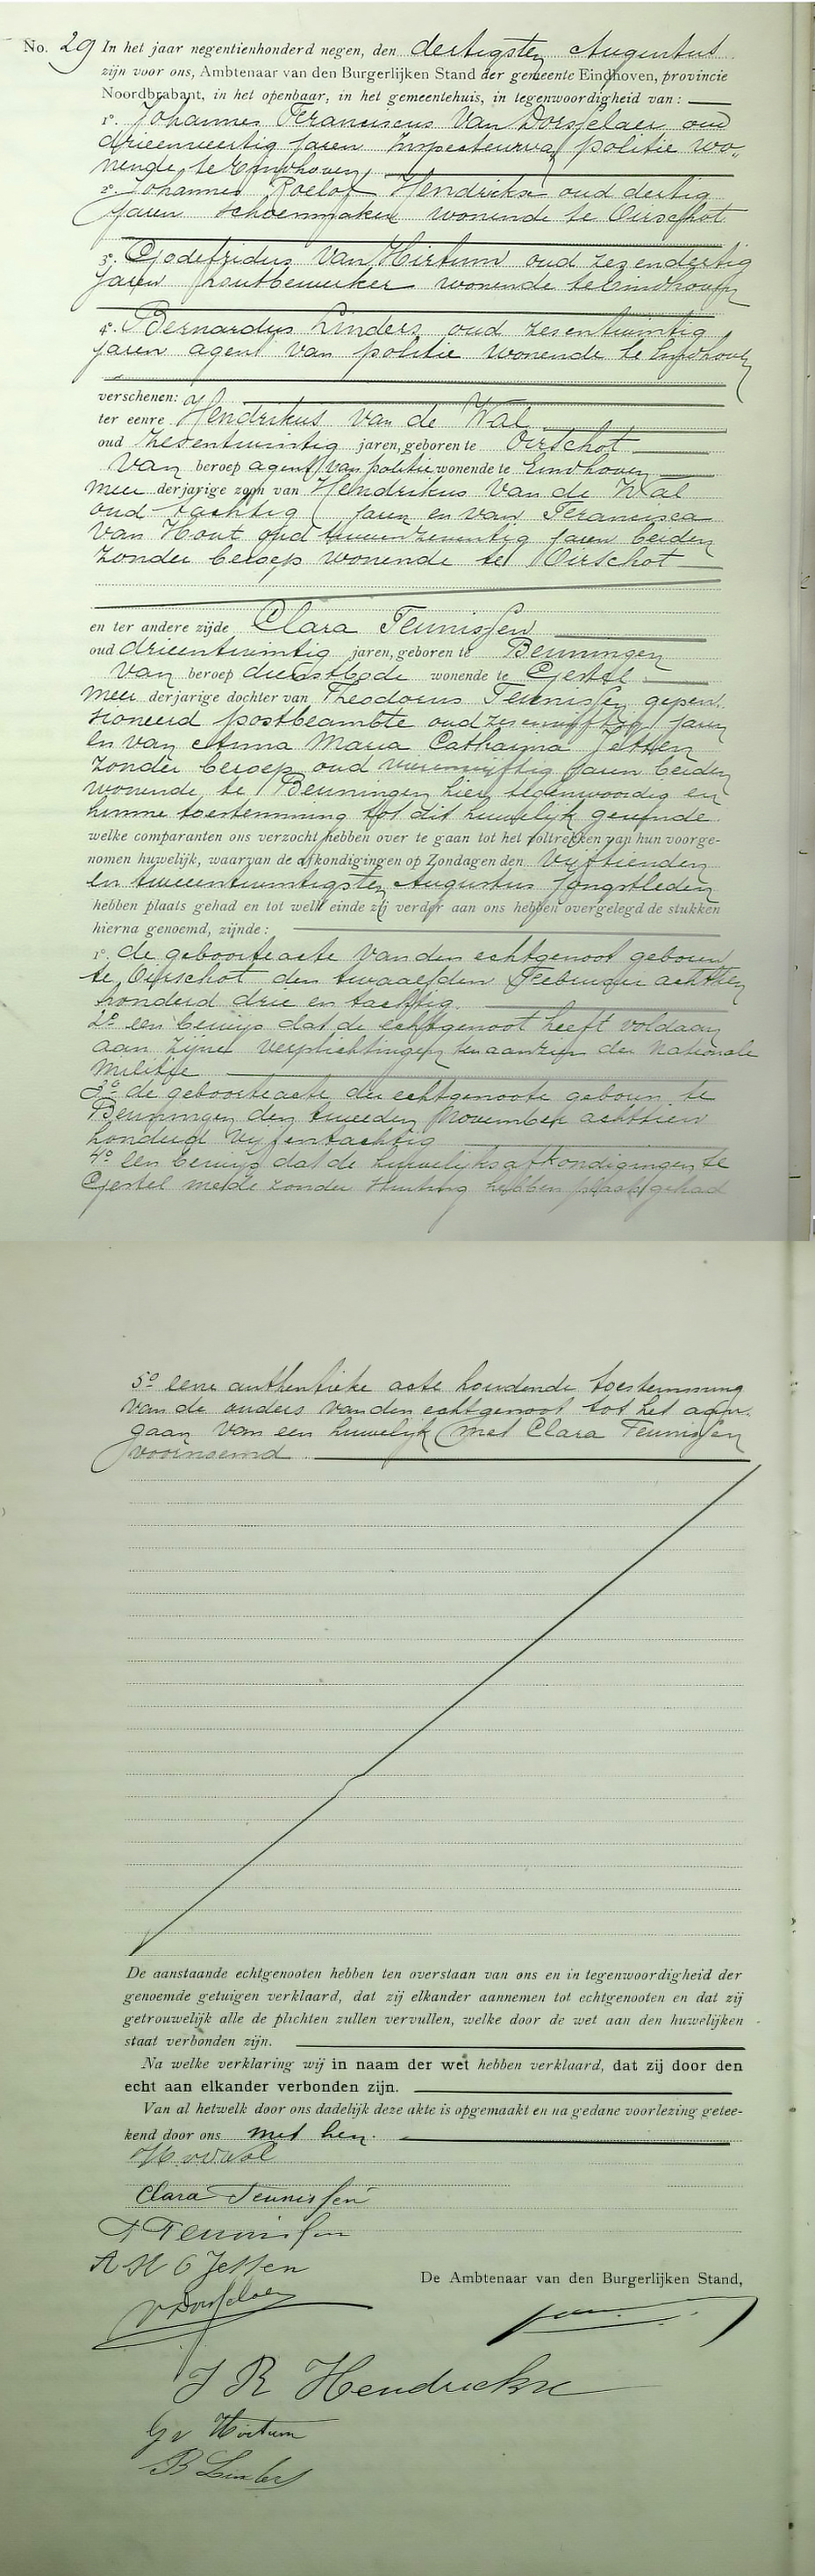 No. 29 In het jaar negentienhonderd negen, den dertigsten Augustus
zijn voor ons, Ambtenaar van den Burgerlijken Stand der gemeente Eindhoven, provincie
Noordbrabant, in het openbaar, in het gemeentehuis, in tegenwoordigheid van :
1º. Johannes Franciscus Van Dorsselaer oud
drieenveertig jaren Inspecteur van politie wo-
nende te Eindhoven
2º. Johannes Roelof Hendrickx oud dertig
jaren schoenmaker wonende te Oirschot
3º. Godefridus Van Hirtum oud zezendertig
jaren houtbewerker wonende te Eindhoven
4º. Bernardus Linders oud zesentwintig
jaren agent van politie wonende te Eindhoven
verschenen:
ter eenre Hendrikus van de Wal
oud zesentwintig jaren, geboren te Oirschot
Van beroep agent van politie wonende te Eindhoven
meer derjarige zoon van Hendrikus Van de Wal
oud tachtig jaren en van Francisca
Van Hout oud tweeenzeventig jaren beiden
zonder beroep wonende te Oirschot
en ter andere zijde Clara Teunissen
oud drieentwintig jaren, geboren te Beuningen
Van beroep dienstbode wonende te Gestel
meer derjarige dochter van Theodorus Teunissen gepen-
sioneerd postbeambte oud zesenvijftig jaren
en van Anna Maria Catharina Jetten
zonder beroep oud vierenvijftig jaren beiden
wonende te Beuningen hier tegenwoordig en
hunne toestemming tot dit huwelijk gevende
welke comparanten ons verzocht hebben over te gaan tot het voltrekken van hun voorge-
nomen huwelijk, waarvan de afkondigingen op Zondagen den Vijftienden
en tweeentwintigsten Augustus jongstleden
hebben plaats gehad en tot welk einde zij verder aan ons hebben overgelegd de stukken
hierna genoemd, zijnde :
1º. de geboorteacte van den echtgenoot geboren
te Oirschot den twaalfden Februari achttien
honderd drie en tachtig.
2º een bewijs dat de echtgenoot heeft voldaan
aan zijne verplichtingen ten aanzien der Nationale
Militie
3º de geboorteacte der echtgenoote geboren te
Beuningen den tweeden November achttien
honderd vijfentachtig
4º een bewijs dat de huwelijksafkondigingen te
Gestel mede zonder stuiting hebben plaats gehad
5º eene authentieke acte houdende toestemming
van de ouders van den echtgenoot tot het aan-
gaan van een huwelijk met Clara Teunissen
voornoemd
De aanstaande echtgenooten hebben ten overstaan van ons en in tegenwoordigheid der
genoemde getuigen verklaard, dat zij elkander aannemen tot echtgenooten en dat zij
getrouwelijk alle de plichten zullen vervullen, welke door de wet aan den huwelijken
staat verbonden zijn.
Na welke verklaring wij in naam der wet hebben verklaard, dat zij door den
echt aan elkander verbonden zijn.
Van al hetwelk door ons dadelijk deze akte is opgemaakt en na gedane voorlezing getee-
kend door ons met hen.
H v d Wal
Clara Teunissen
T Teunissen
A M C Jetten
De Ambtenaar van den Burgerlijken Stand,
V Dorsselaer
J R Hendrickx
G v Hirtum
B Linders